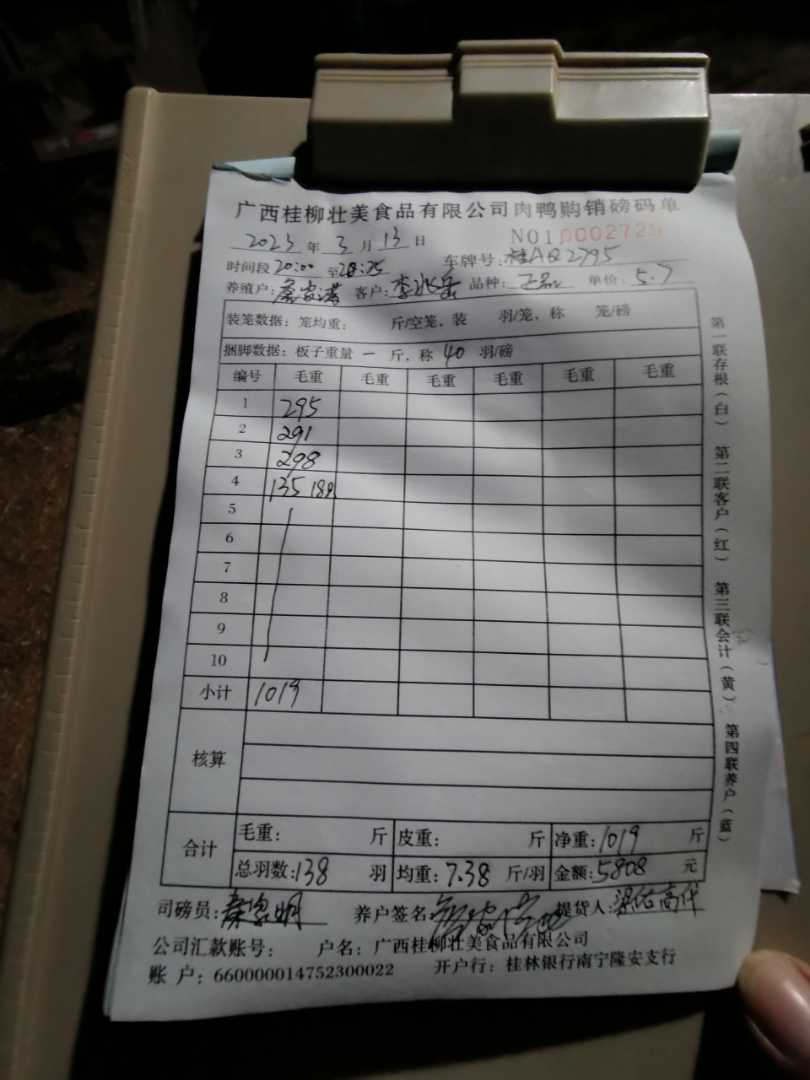 广西桂柳壮美食品有限公司肉鸭购销磅码单
2023年3月13日 NO10002729
时间段20:00至20:25 车牌号:桂AQ2795
养殖户: 客户:李兆岳 品种:正品 单价:5.7
装笼数据:笼均重: 斤/空笼,装 羽/笼,称 笼/磅
捆脚数据:板子重量 一 斤,称 40 羽/磅
编号 毛重 毛重 毛重 毛重 毛重 毛重
1 295
2 291
3 298
4 135 18只
5
6
7
8
9
10
小计 1019
核算
合计 毛重: 斤 皮重: 斤 净重:1019 斤
总羽数:138 羽 均重:7.38 斤/羽 金额:5808 元
司磅员: 养户签名 提货人:
公司汇款账号: 户名:广西桂柳壮美食品有限公司
账 户:660000014752300022 开户行:桂林银行南宁隆安支行
第一联存根(白) 第二联客户(红) 第三联会计(黄) 第四联养户(蓝)